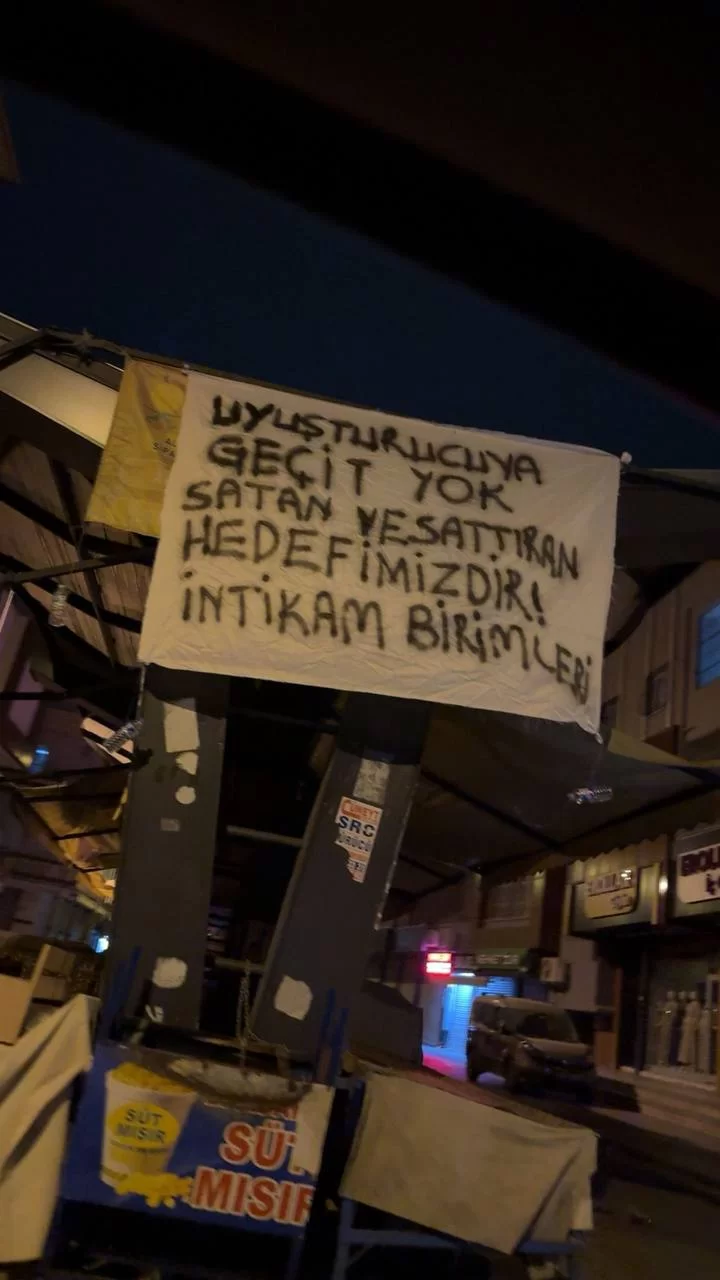 UYUŞTURUCUYA
GEÇİT YOK
SATAN VESATTIRAN
HEDEFİMİZDİR!
İNTİKAM BİRİMLERİ
CÜNEYT
SRC
SÜT
MISIR
SÜT
MISIR